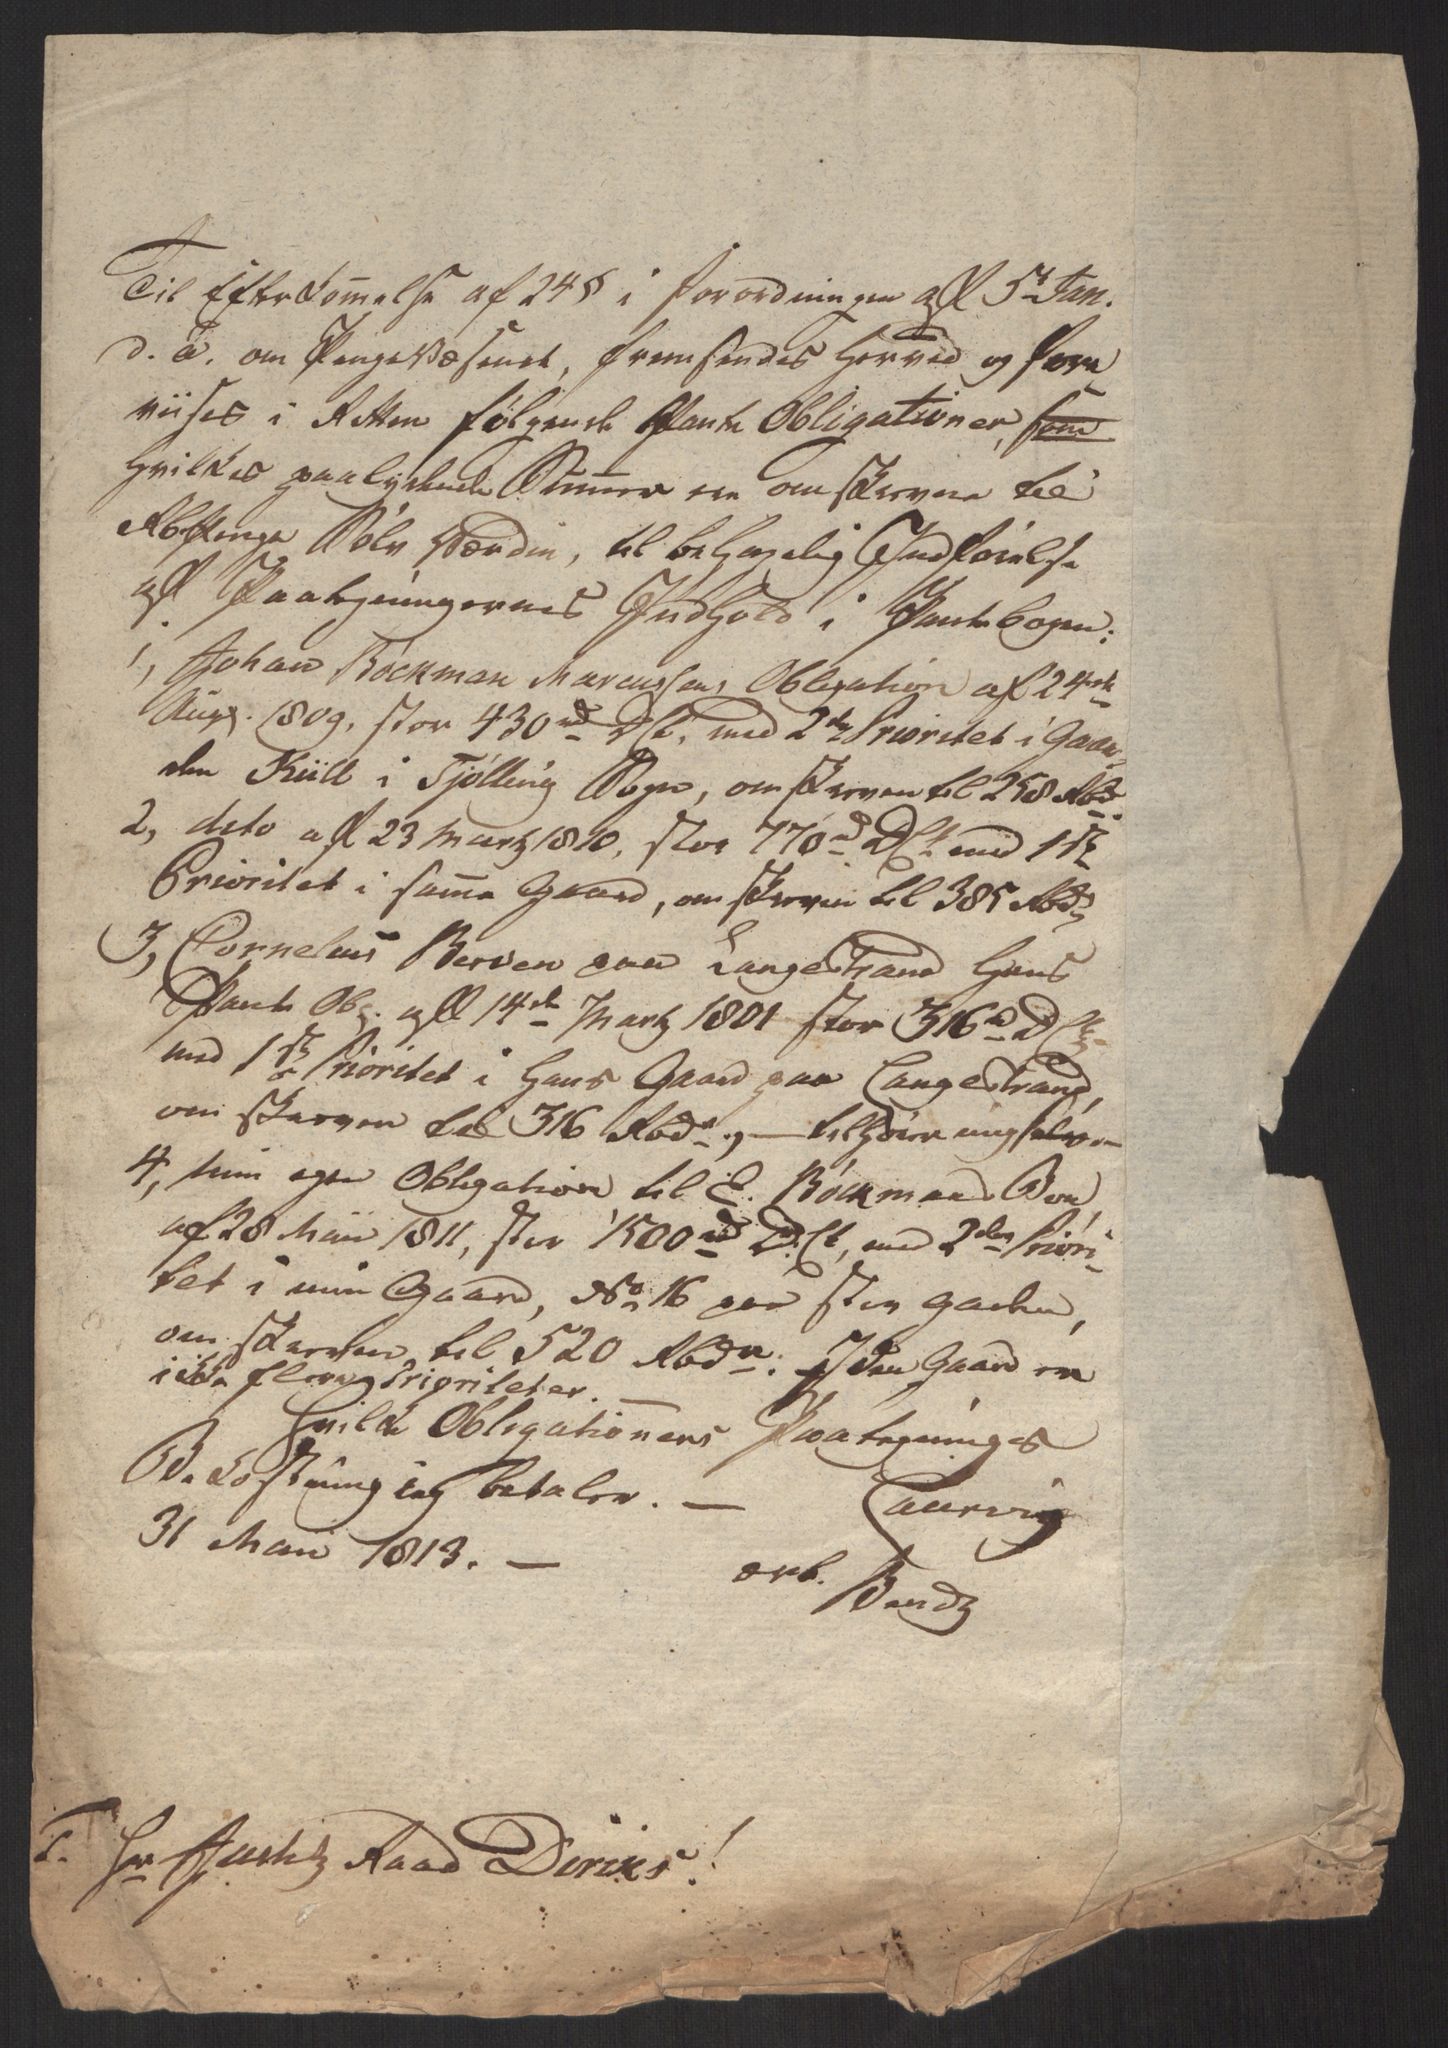 Til Efterkom̅else af 24 § i Forordningen aff 5te Jan.
d. a. om Pengevæsenet, fremsendes herved og fore
viises i Retten følgende Pante Obligationer, som
hvilkes paalydende Sum̅er ere omskreven til
Rbpenge Sølv Værdie, til behagelig Indførelse
aff Paategningernes Indhold i Pantebogen:
1, Johan Böckman Marcussens Obligation af 24de
Aug. 1809, stor 430 rd DCt. med 2den Prioritet i Gaar-
den Kiill i Tjølling Sogn, omskreven til 258 Rbd
2, dito aff 23 Martz 1810, stor 770 rd DCt med 1ste
Prioritet i sam̅e Gaard, omskreven til 385 Rbd
3, Cornelius Berven paa Langestrand hans
Pante Obg. aff 14de Martz 1801 stor 316 rd DCt
med 1ste Prioritet i hans Gaard paa Langestrand,
omskreven til 316 Rbdr, — tilhører mig selv —
4, min egen Obligation til E. Böckmans Boe,
af 28 Mai 1811, stor 1500 rd DCt, med 2den Priori-
tet i min Gaard, No 16 paa Storgaden,
omskreven til 520 Rbdr. I den Gaard er
ikke flere Prioriteter. —
Hvilke Obligationers Paategnings
Bekostning ieg betaler. — Laurvig
31 Mai 1813. —
ærb. Bendz
T. Hr Justitz Raad Diriks!